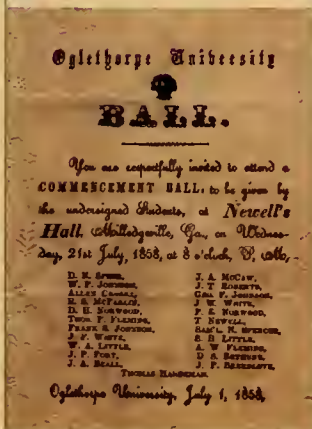 Oglethorpe University
BALL.
You are respectfully invited to attend a
COMMENCEMENT BALL, to be given by
the undersigned Students, at Newell's
Hall, Milledgeville, Ga., on Wednes-
day, 21st July, 1858, at 8 o'clock, P. M.
W. F. JOHNSON,
D. H. NORWOOD,
THOS. F. FLEMING,
FRANK S. JOHNSON,
J. F. WHITE,
W. A. LITTLE,
J. P. FORT,
J. A. BEALL,
J. A. MCCAW,
J. T. ROBERTS,
GEO. F. JOHNSON,
J. W. WHITE,
F. S. NORWOOD,
T. NEWELL,
SAM'L N. SPENCER,
B. H. LITTLE,
A. W. FLEMING,
D. S. BETHUNE,
THOMAS HARDEMAN.
Oglethorpe University, July 1, 1858.